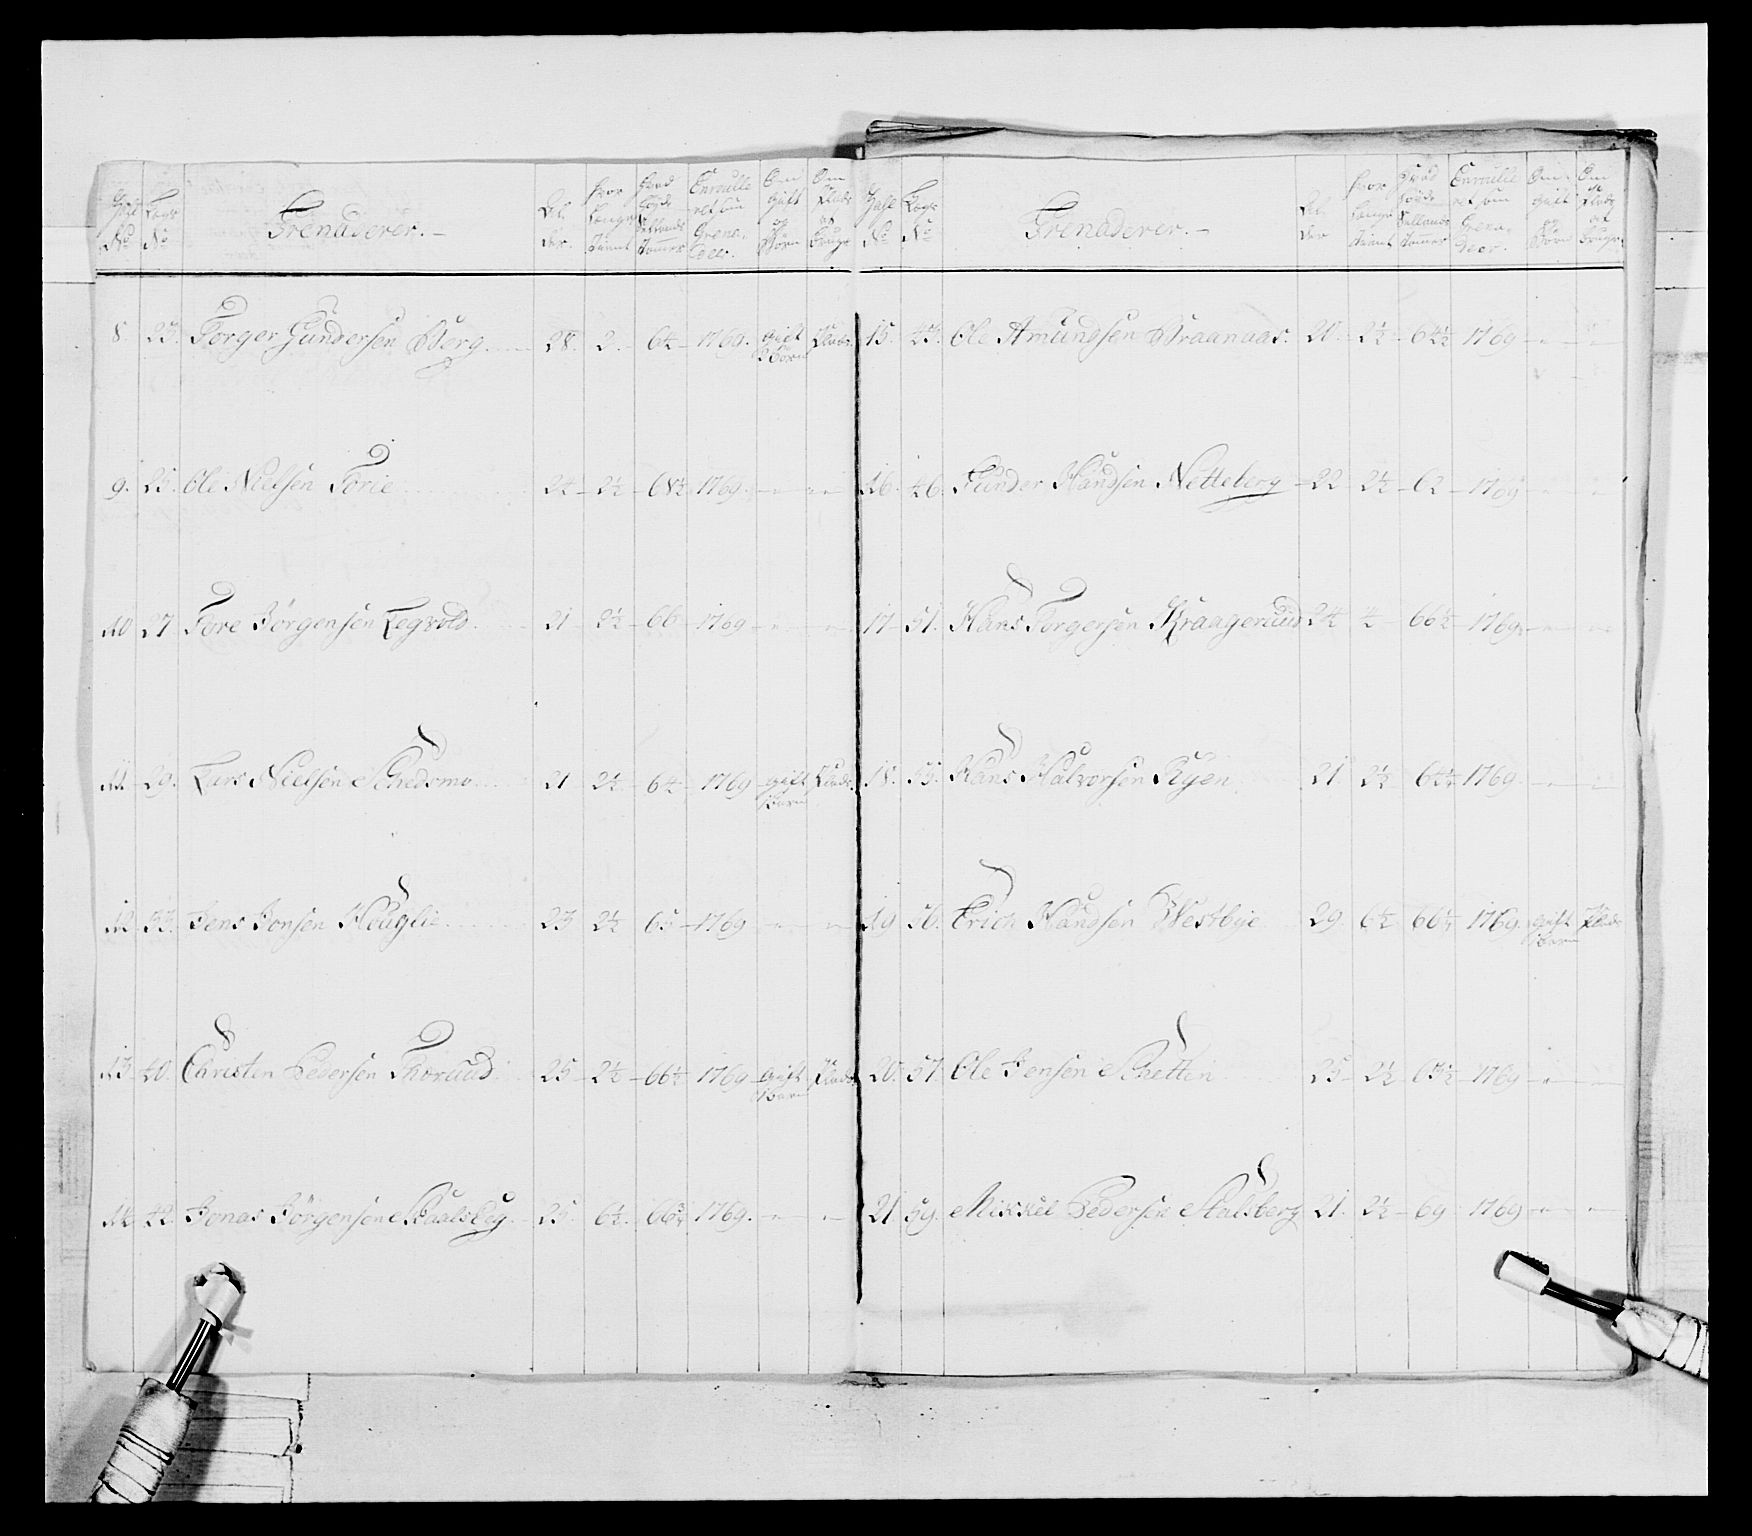 No Lægs No Grenaderer.- Alder Hvor længe tient Hvad høyde Sellands Tommer Enroulleret som Grenadeer. Om gift og Børn Om Plads at bruge
8. 23. Torger Gundersen Berg 28. 2. 64 1769. gift Børn Plads
9. 25. Ole Nielsen Torie 24 2½ 68½ 1769.
10 27 Tore Jörgensen Legvold 21 2½ 66 1769
11. 29. Lars Nielsen Schedsmo 21 2½ 64 1769 gift Barn Plads
12 33. Jens Jonsen Heuglie 23 2½ 65 1769
13 40. Christen Pedersen Thoruud 25 2½ 66½ 1769 gift Barn Plads
14 42 Jonas Jörgensen Skaalsleg 25 6½ 66¾ 1769.
No Lægs No Grenaderer.- Alder Hvor længe tient Hvad høyde Sellands Tommer Enroulleret som Grenadeer. Om gift og Børn Om Plads at bruge
15. 43. Ole Amundsen Braanaas. 21. 2½ 64½ 1769
16. 46. Gunder Handsen Netteberg 22 2½ 62 1769
17 51. Hans Torgersen Kraageruud 24 4 66½ 1769.
18. 55. Hans Halvorsen Ryen 21 2½ 64¼ 1769.
19 56. Erich Handsen Westbye 29. 6½ 66¼ 1769. gift Barn Plads
20. 57. Ole Jensen Schetten 25 2½ 63½ 1769
21 59. Mikkel Pedersen Stalsberg 21. 2½ 69 1769